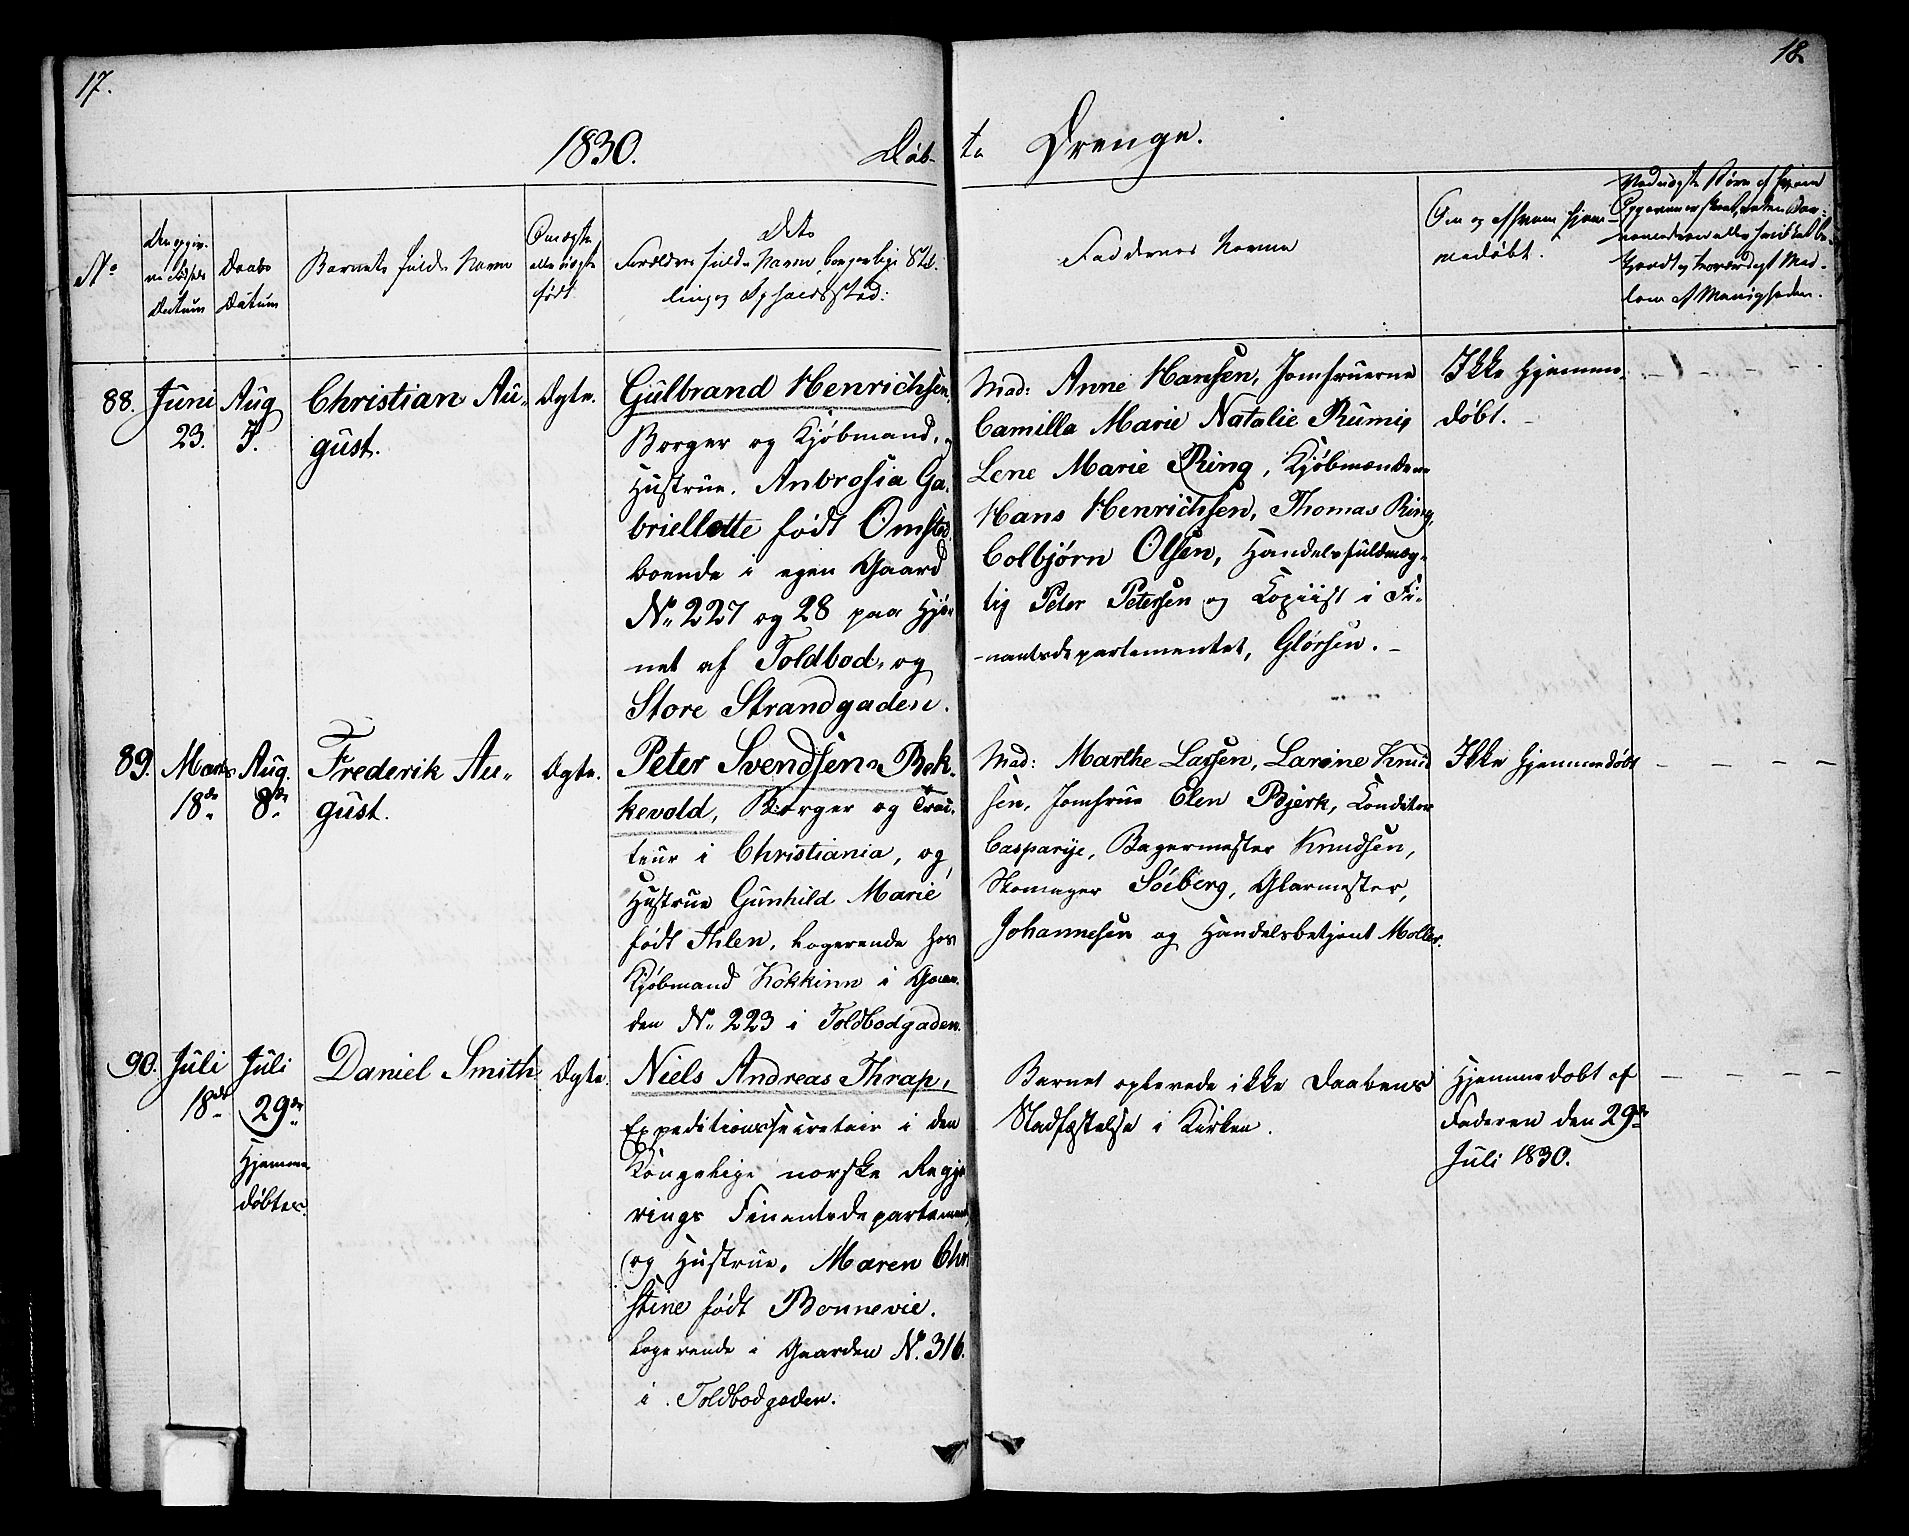 17.
18.
1830. Døb-
te Drenge.
No
Den opgiv-
ne Fødsels
Datum
Daabs
Datum
Barnets fulde Navn
Om ægte
eller uægte
født
Dets
Forældres fulde Navne, borgerlige Stil-
ling og Opholdssted:
Faddernes Navne
Om og af hvem hjem-
medøbt.
88. Juni
23.
Aug
5.
Christian Au-
gust.
Ægte.
Gulbrand Henrichsen,
Borger og Kjøbmand,
Hustrue, Ambrosia Ga-
briellette født Omsted
boende i egen Gaard
No 227 og 28 paa Hjør-
net af Toldbod- og
Store Strandgaden.
Mad: Anne Hansen, Jomfruerne
Camilla Marie Natalie Rumi,
Lene Marie Ring, Kjøbmændene
Hans Henrichsen, Thomas Ring,
Colbjørn Olsen, Handelsfuldmæg-
tig Peter Petersen og Copiist i Fi-
nantsdepartementet, Glørsen. -
Ikke Hjemme-
døbt. -
89. Marts
18de
Aug.
8de
Frederik Au-
gust.
Ægte.
Peter Svendsen Bek-
kevold, Borger og Trai-
teur i Christiania, og
Hustrue Gunhild Marie
født Ihlen, Logerende hos
Kjøbmand Kokkinn i Gaar-
den No 223 i Toldbodgaden.
Mad: Marthe Larsen, Larine Knud
sen, Jomfrue Elen Bjerk, Conditor
Casparije, Bagermester Knudsen,
Skomager Søeberg, Glarmester,
Johannesen og Handelsbetjent Moller.
Ikke Hjemmedøbt
90. Juli
18de
Juli
29de
Hjemme-
døbtes.
Daniel Smith
Ægte.
Niels Andreas Thrap,
Expeditionssecretair i den
Kongelige norske Regje
rings Finantsdepartement,
og Hustrue, Maren Chri
stine født Bonnevie.
Logerende i Gaarden No. 316.
i Toldbodgaden.
Barnet oplevede ikke Daabens
Stadfæstelse i Kirken.
Hjemmedøbt af
Faderen den 29de
Juli 1830.